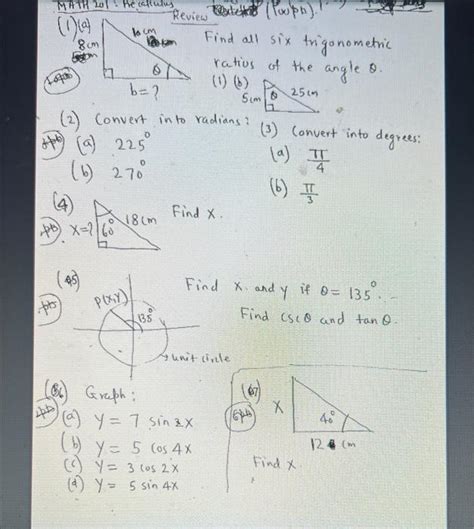 MATH 201 : Precalculus
Review
(100 pts).
(1)(a)
8cm
10 cm
θ
b = ?
Find all six trigonometric
ratios of the angle θ.
(1) (b)
5cm
θ
25cm
(2) Convert into radians:
(a) 225°
(b) 270°
(3) Convert into degrees:
(a) π/4
(b) π/3
(4)
x=?
60°
18cm
Find x.
(5)
P(x,y)
135°
unit circle
Find x and y if θ = 135°.
Find cscθ and tanθ.
(6) Graph:
(a) y = 7 sin 2x
(b) y = 5 cos 4x
(c) y = 3 cos 2x
(d) y = 5 sin 4x
(7)
6pts
x
40°
12 cm
Find x